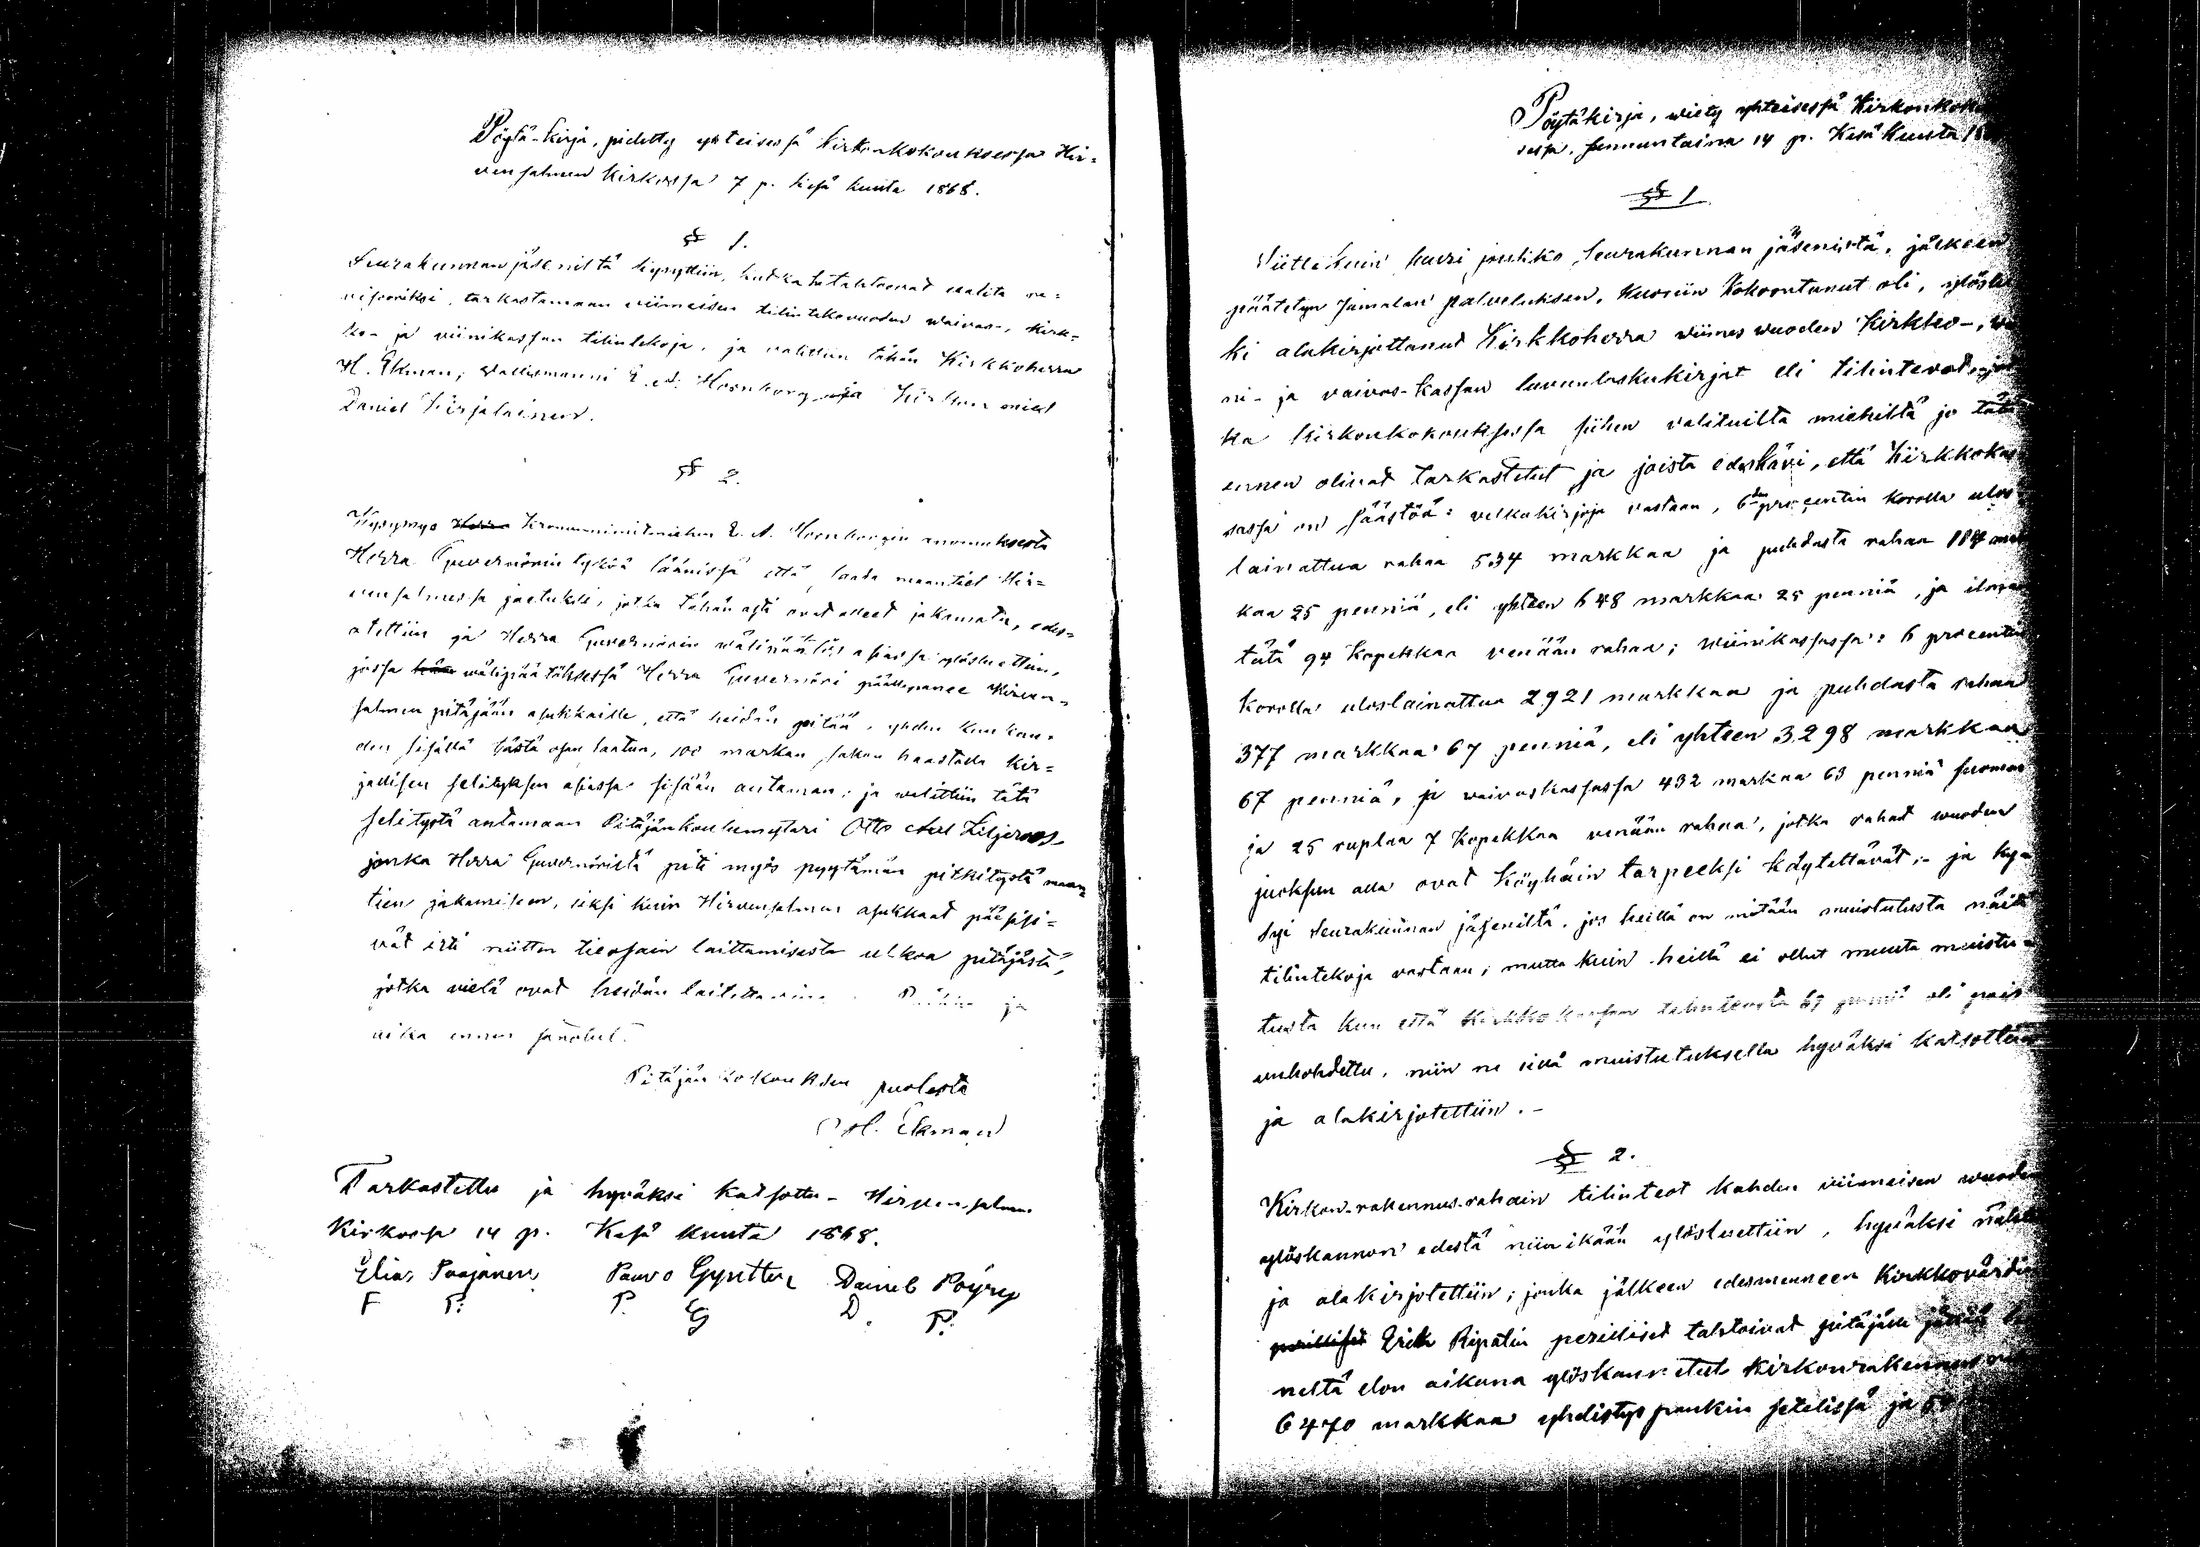 Pöytä-kirja, pidetty yhteisessä kirkonkokouksessa Hir=
vensalmen kirkossa 7 p. kesä kuuta 1868.
§ 1.
Seurakunnan jäseniltä kysyttiin, kutka he tahtoovat valita re=
visooriksi, tarkastamaan viimeisen tilintekovuoden waivas-, kirk=
ko- ja viinikassan tilintekoja, ja valittiin tähän Kirkkoherra
H. Ekman, Wallesmanni E. A. Hornborg ja Kirkon mies
Daniel Kirjalainen.
§ 2.
Kysymys Kruununnimismiehen E. A. Hornborgin anomuksesta
Herra Guvernörin tyköä läänissä että, saada maantiet Hir=
vensalmessa jaetuksi, jotka tähän asti ovat olleet jakamata, edes=
otettiin ja Herra Guvernörin wälipäätös asiassa ylösluettiin,
jossa wälipäätöksessä Herra Guvernöri päällepanee Hirven=
salmen pitäjään asukkaille, että heidän pitää, yhden kuukau=
den sisällä tästä osan saatua, 100 markan sakon haastolla kir=
jallisen selityksen asiassa sisään antaman; ja walittiin tätä
selitystä antamaan Pitäjänkoulumestari Otto Aul Liljeroos
jonka Herra Guvernöristä piti myös pyytämän pitkitystä maan
tien jakamiseen, siksi kuin Hirvensalmen asukkaat pääsisi=
vät irti niitten tieosain laittamisesta ulkoa pitäjästä,
jotka vielä ovat heidän laitettavina. Paikka ja
aika ennen sanotut.
Pitäjän kokouksen puolesta
H. Ekman
Tarkastettu ja hyväksi katsottu - Hirvensalmen
Kirkossa 14 p. Kesä kuuta 1868.
Elias Paajanen Paavo Gynther Daniel Pöyry
F P. P. G D. P.
Pöytäkirja, wiety yhteisessä Kirkonkok
sessa, sunnuntaina 14 p. Kesä Kuuta 18
§ 1
Siitte kuin suuri joukko Seurakunnan jäsenistä, jälkeen
päätetyn Jumalan palveluksen, Kuoriin Kokoontunut oli, ylöslu
ki alakirjottanut Kirkkoherra viimes wuoden Kirkko-, w
ni- ja vaivas-kassan luvunlaskukirjat eli tilinteot, jot
ka kirkonkokouksessa siihen valituilta miehiltä jo tätä
ennen olivat tarkastetut ja joista edeskävi, että Kirkkokas
sassa on säästöä: velkakirjoja vastaan, 6 den procentin korolla ulos
lainattua rahaa 534 markkaa ja puhdasta rahaa 114 mark
kaa 25 penniä, eli yhteen 648 markkaa 25 penniä, ja ilman
tätä 94 Kopekkaa venään rahaa; wiinikassassa: 6 procentin
Korolla uloslainattua 2,921 markkaa ja puhdasta rahaa
377 markkaa 67 penniä, eli yhteen 3,298 markkaa
67 penniä, ja waivaskassassa 432 markaa 63 penniä Suomen
ja 25 ruplaa 7 Kopekkaa venään rahaa, jotka rahat wuoden
juoksun alla ovat Köyhäin tarpeeksi käytettävät;- ja ky=
syi Seurakunnan jäseniltä, jos heillä on mitään muistutusta näitä
tilintekoja vastaan; mutta kuin heillä ei ollut muuta muistu=
tusta kun että Kirkko kassan tilinteosta 67 penniä oli pois
unhohdettu, niin ne sillä muistutuksella hyväksi katsottiin
ja alakirjotettiin.-
§ 2.
Kirkon-rakennus-rahain tilinteot kahden viimeisen wuoden
ylöskannon edestä niin ikään ylösluettiin, hyväksi näh
ja alakirjotettiin; jonka jälkeen edesmenneen Kirkkovärdin
perilliset Erik Ripatin perilliset tahtoivat pitäjälle jättää
neltä elon aikana ylöskannetut Kirkonrakennus
6470 markkaa yhdistys pankin setelissä ja